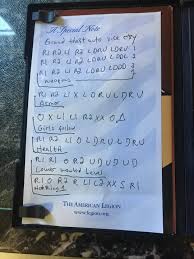 A Special Note
Grand theft auto vice city
R1 R2 L1 R2 L D R U L D R U 1
R1 R2 L1 R2 L D R U L D D L 2
R1 R2 L1 R2 L D R U L D D D 3
Weapons
R1 R2 L1 X L D R U L D R U
Armor
O X L1 L1 R2 X X O Δ
Girls follow
R1 R2 L1 O L D R U L D R U
Health
R1 R1 O R2 U D U D U D
Lower wanted Level
R1 O R2 R L1 L2 X X S R1
THE AMERICAN LEGION
www.legion.org